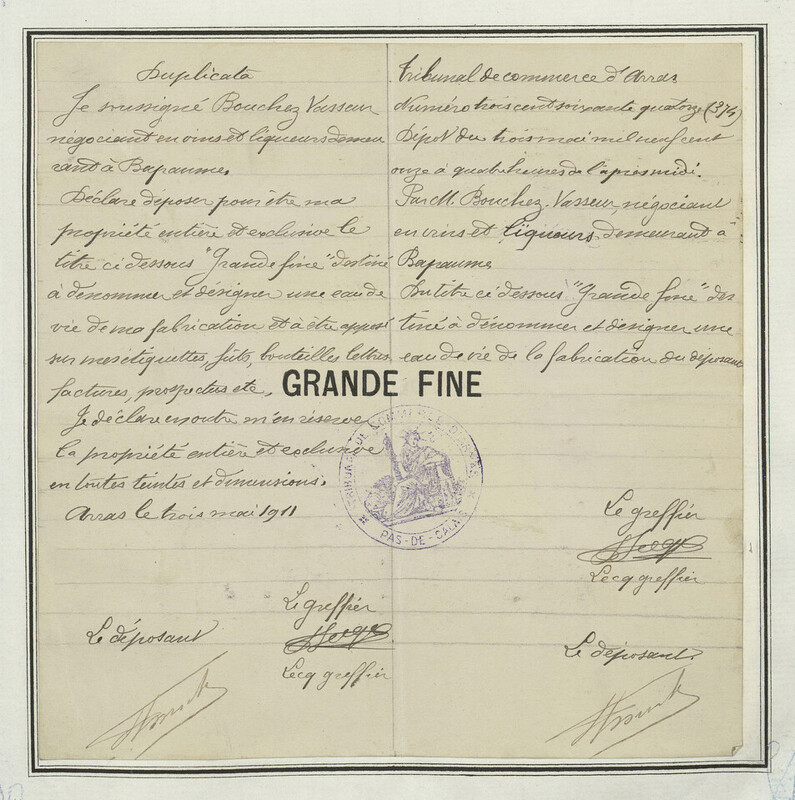 Duplicata
Je soussigné Bouchez Vasseur
négociant en vins et liqueurs demeu
rant à Bapaume.
Déclare déposer pour être ma
propriété entière et exclusive le
titre ci dessous "Grande fine" destiné
à dénommer et désigner une eau de
vie de ma fabrication et à être apposé
sur mes étiquettes, fûts, bouteilles lettres
factures, prospectus etc.
Je déclare en outre m'en réserver
la propriété entière et exclusive
en toutes teintes et dimensions.
Arras le trois mai 1911
Le greffier
Le déposant
Lecq greffier
Tribunal de commerce d'Arras
Numéro trois cent soixante quatorze (374)
Dépôt du trois mai mil neuf cent
onze à quatre heures de l'après midi.
Par M. Bouchez-Vasseur, négociant
en vins et liqueurs, demeurant à
Bapaume
Du titre ci dessous "Grande fine" des
tiné à dénommer et désigner une
eau de vie de la fabrication du déposant
GRANDE FINE
TRIBUNAL DE COMMERCE D'ARRAS
PAS-DE-CALAIS
Le greffier
Lecq greffier
Le déposant